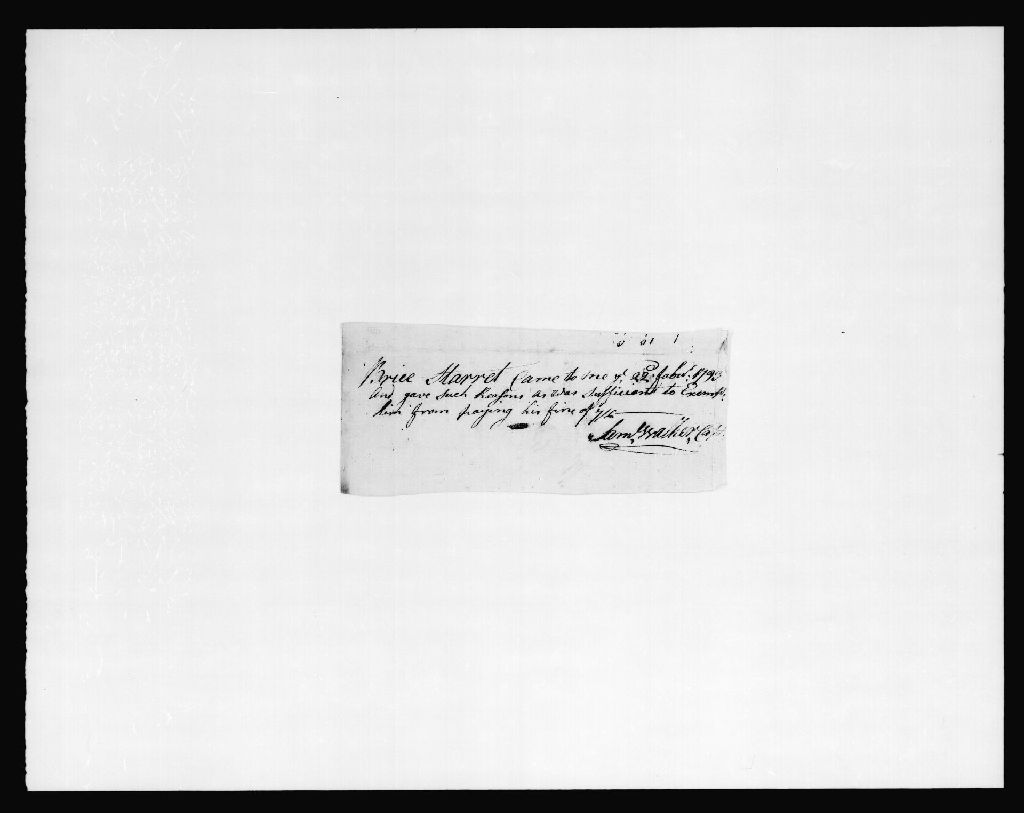 Brice Starret Came to me ye 22d fabry. 1793
And gave Such Reasons as was Sufficiant to Exempt
him from paying his fine of 7/6
Saml. Walker, Capt.